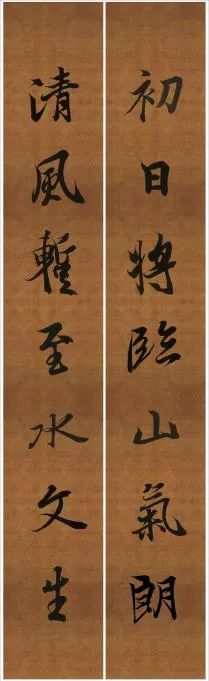 初日将臨山氣朗
清風暫至水文生